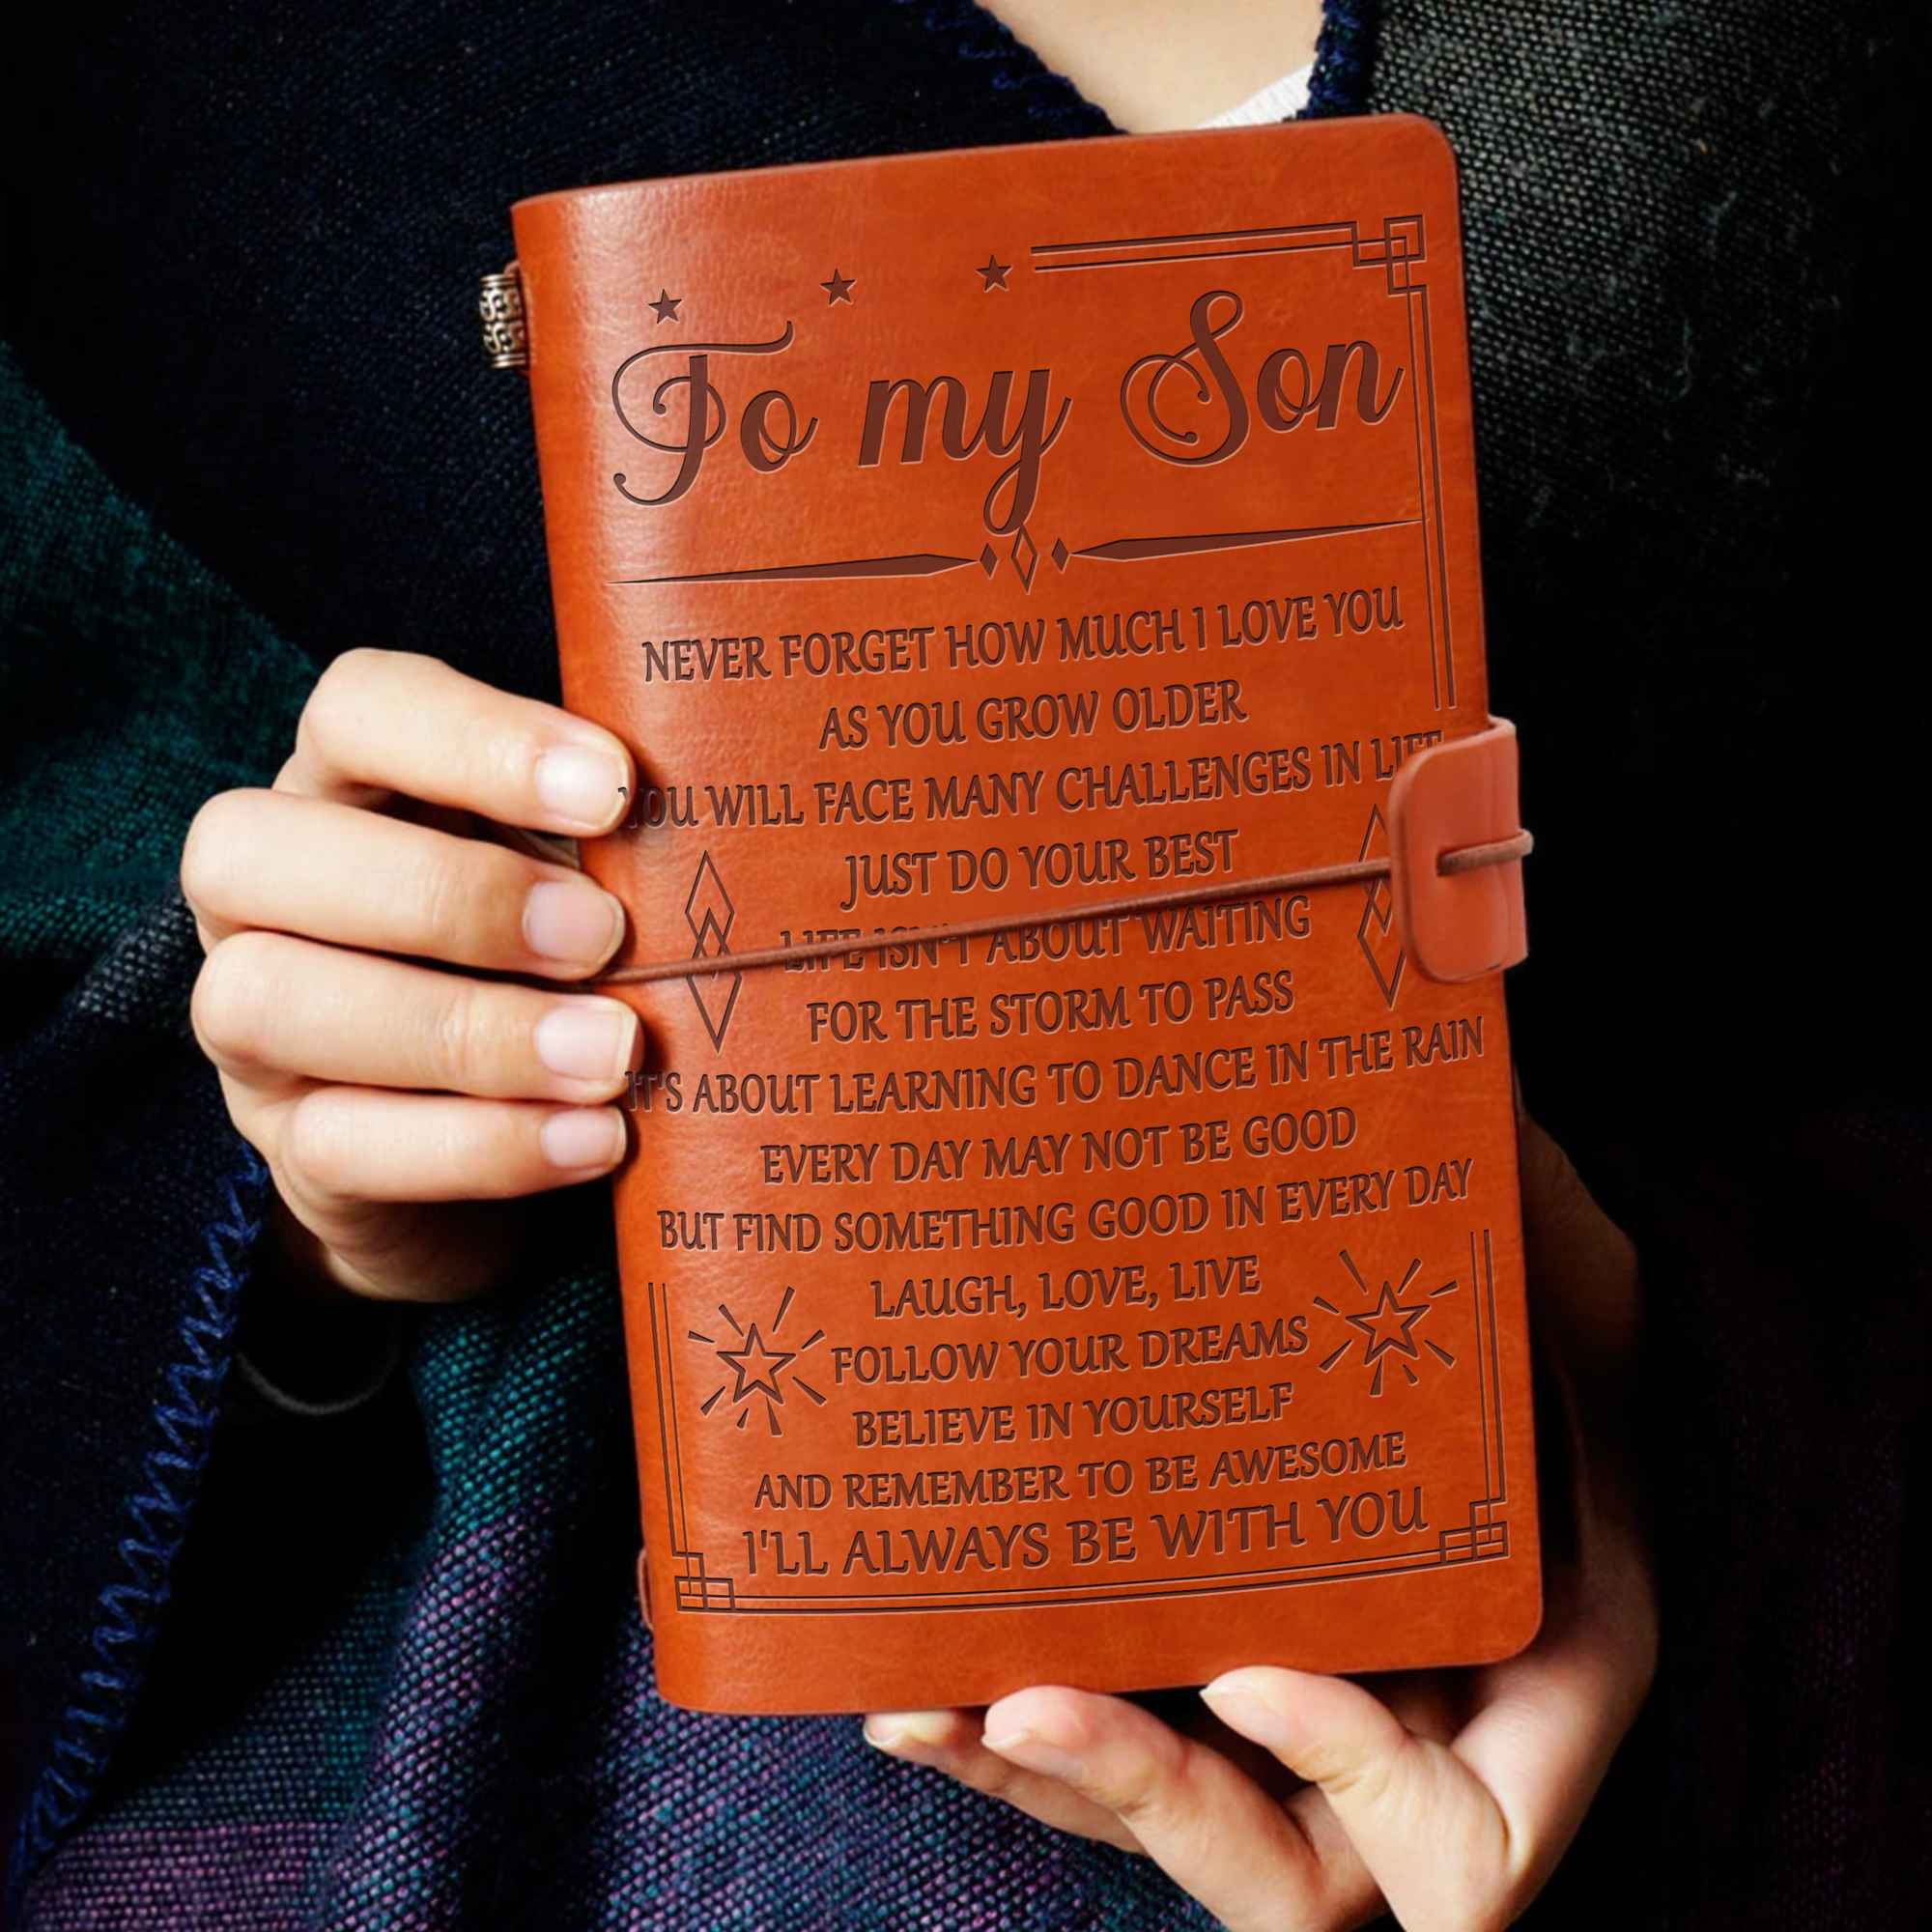 To my Son
NEVER FORGET HOW MUCH I LOVE YOU
AS YOU GROW OLDER
YOU WILL FACE MANY CHALLENGES IN LIFE
JUST DO YOUR BEST
LIFE ISN'T ABOUT WAITING
FOR THE STORM TO PASS
IT'S ABOUT LEARNING TO DANCE IN THE RAIN
EVERY DAY MAY NOT BE GOOD
BUT FIND SOMETHING GOOD IN EVERY DAY
LAUGH, LOVE, LIVE
FOLLOW YOUR DREAMS
BELIEVE IN YOURSELF
AND REMEMBER TO BE AWESOME
I'LL ALWAYS BE WITH YOU